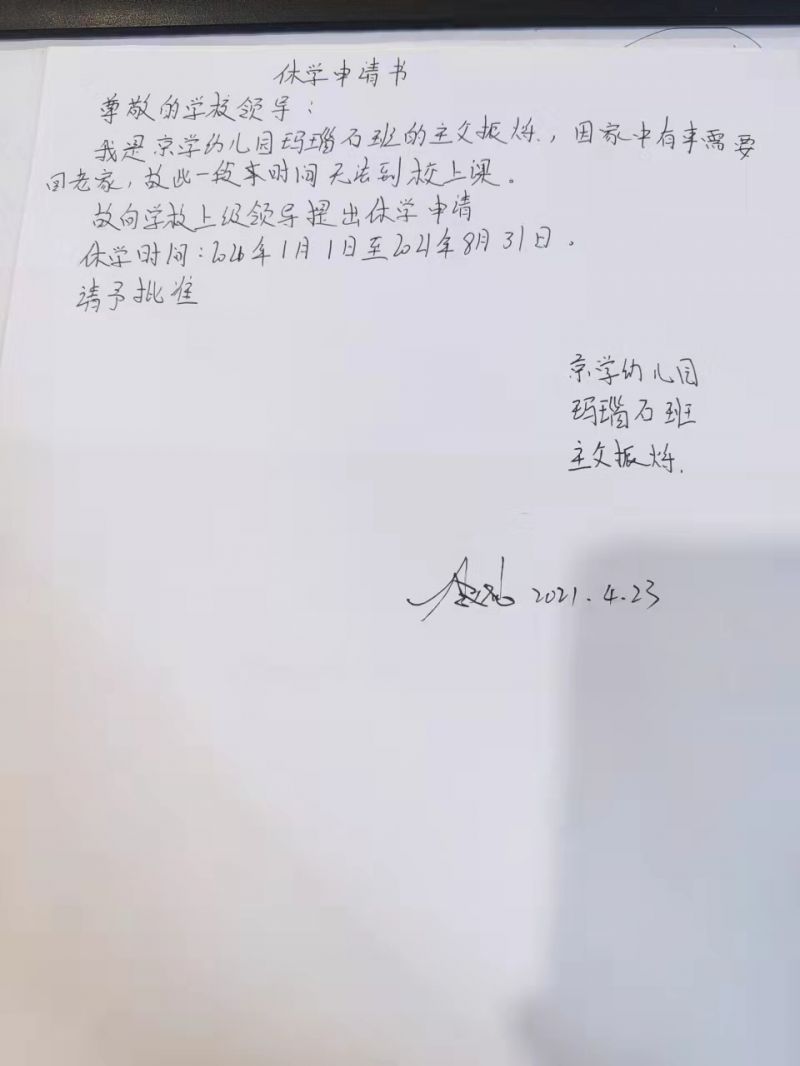 休学申请书
尊敬的学校领导：
我是京学幼儿园玛瑙石班的主文振烁，因家中有事需要
回老家，故此一段来时间无法到校上课。
故向学校上级领导提出休学申请
休学时间：2020年1月1日至2021年8月31日。
请予批准
京学幼儿园
玛瑙石班
主文振烁.
2021.4.23